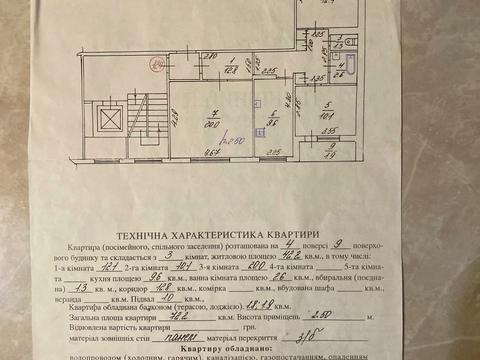 1.05
3
1.3
1
12.8
2.80
1.60
2.05
1.35
4
2.6
4.20
7
20.0
h=2.50
4.67
6
9.6
2.05
4.20
2.85
5
10.1
3.55
9
1.9
ТЕХНІЧНА ХАРАКТЕРИСТИКА КВАРТИРИ
Квартира (посімейного, спільного заселення) розташована на 4 поверсі 9 поверхо-
вого будинку та складається з 3 кімнат, житловою площею 42.2 кв.м, в тому числі:
1-а кімната 12.1 2-га кімната 10.1 3-я кімната 20.0 4-та кімната - 5-та кімна-
та - кухня площею 9.6 кв.м, ванна кімната 2.6 кв.м., вбиральня (поєдна-
на) 1.3 кв. м, коридор 12.8 кв.м., комірка - кв.м., вбудована шафа - кв.м.,
веранда - кв.м. Підвал 10 кв.м.
Квартира обладнана балконом (терасою, лоджією) 1.8; 1.9 кв.м.
Загальна площа квартири 72.2 кв.м. Висота приміщень 2.50 м.
Відновлена вартість квартири грн.
матеріал зовнішніх стін панелі матеріал перекриття з/б
Квартиру обладнано:
водопроводом (холодним, гарячим), каналізацією, газопостачанням, опаленням